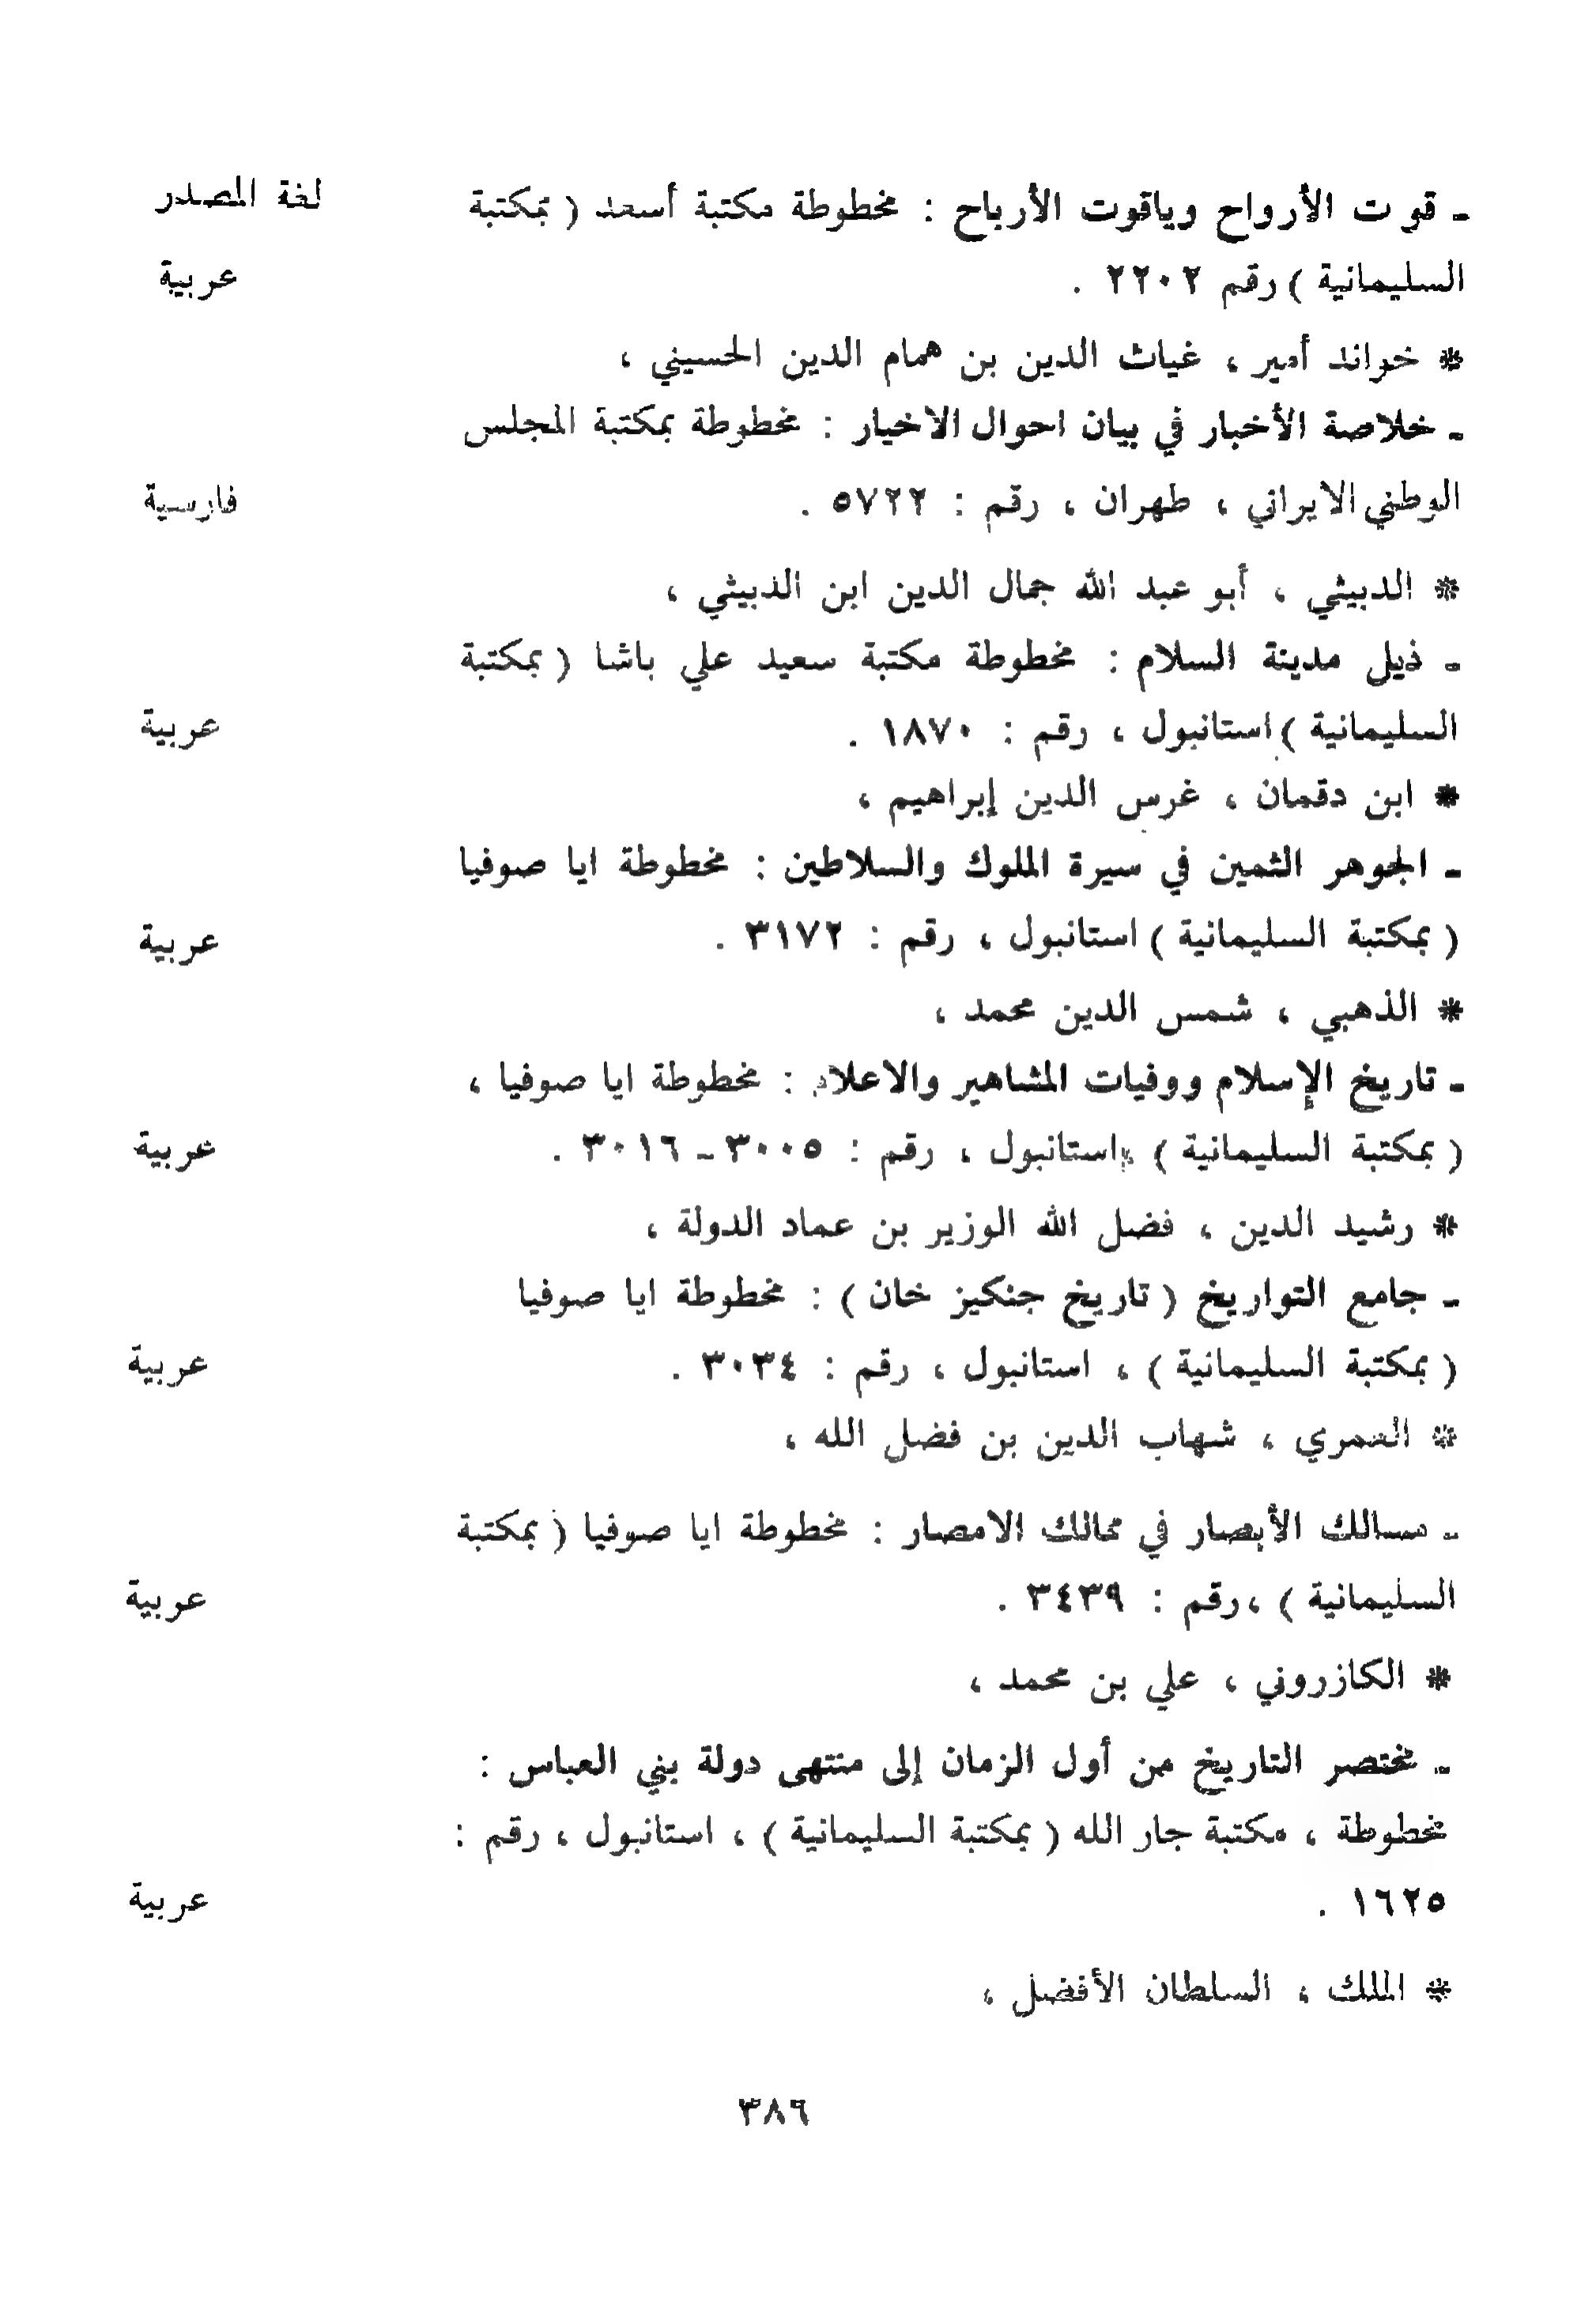 لغة المصدر
ـ قوت الأرواح وياقوت الأرباح : مخطوطة مكتبة أسعد ( بمكتبة
السليمانية ) رقم ٢٢٠٢ .
عربية
* خواند أمير ، غياث الدين بن همام الدين الحسيني ،
ـ خلاصة الأخبار في بيان احوال الاخيار : مخطوطة بمكتبة المجلس
الوطني الايراني ، طهران ، رقم : ٥٧٢٢ .
فارسية
* الدبيثي ، أبو عبد الله جمال الدين ابن الدبيثي ،
ـ ذيل مدينة السلام : مخطوطة مكتبة سعيد علي باشا ( بمكتبة
السليمانية ) استانبول ، رقم : ١٨٧٠ .
عربية
* ابن دقمان ، غرس الدين إبراهيم ،
ـ الجوهر الثمين في سيرة الملوك والسلاطين : مخطوطة ايا صوفيا
( بمكتبة السليمانية ) استانبول ، رقم : ٣١٧٢ .
عربية
* الذهبي ، شمس الدين محمد ،
ـ تاريخ الإسلام ووفيات المشاهير والاعلام : مخطوطة ايا صوفيا ،
( بمكتبة السليمانية ) استانبول ، رقم : ٣٠٠٥ ـ ٣٠١٦ .
عربية
* رشيد الدين ، فضل الله الوزير بن عماد الدولة ،
ـ جامع التواريخ ( تاريخ جنكيز خان ) : مخطوطة ايا صوفيا
( بمكتبة السليمانية ) ، استانبول ، رقم : ٣٠٣٤ .
عربية
* العمري ، شهاب الدين بن فضل الله ،
ـ مسالك الأبصار في ممالك الامصار : مخطوطة ايا صوفيا ( بمكتبة
السليمانية ) ، رقم : ٣٤٣٩ .
عربية
* الكازروني ، علي بن محمد ،
ـ مختصر التاريخ من أول الزمان إلى منتهى دولة بني العباس :
مخطوطة ، مكتبة جار الله ( بمكتبة السليمانية ) ، استانبول ، رقم :
١٦٢٥ .
عربية
* الملك ، السلطان الأفضل ،
٣٨٦